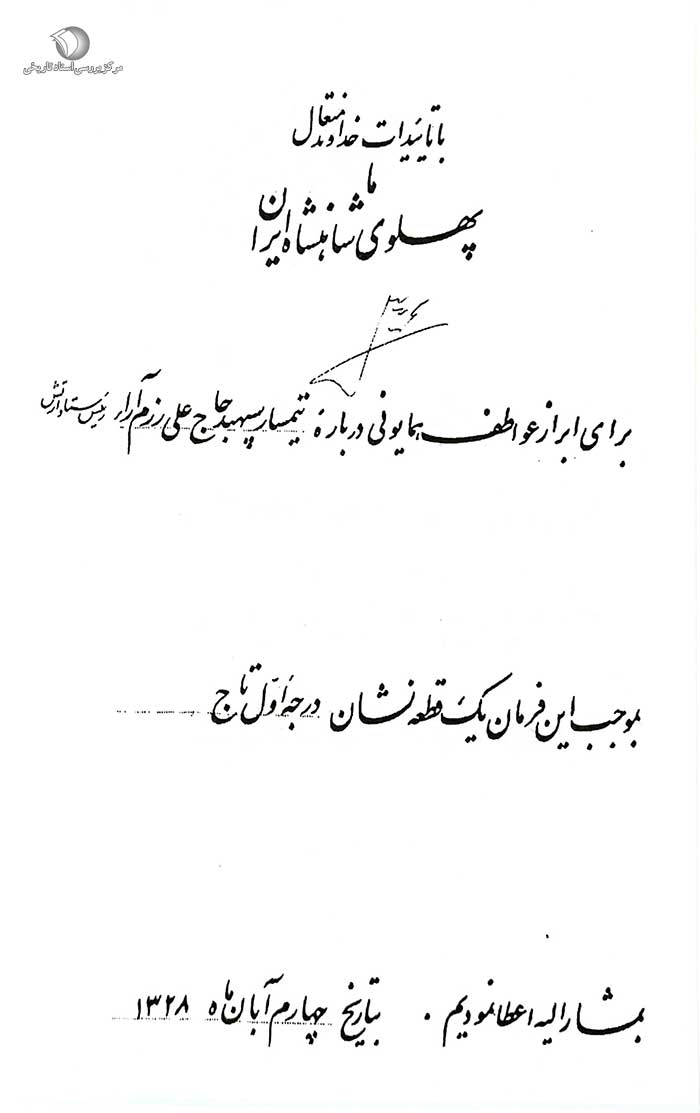 مرکز بررسی اسناد تاریخی
با تائیدات خداوند متعال
ما
پهلوی شاهنشاه ایران
برای ابراز عواطف همایونی درباره تیمسار سپهبد حاج علی رزم آرا، رئیس ستاد ارتش
بموجب این فرمان یک قطعه نشان درجه اوّل تاج
بمشارالیه اعطا نمودیم. بتاریخ چهارم آبان ماه ۱۳۲۸